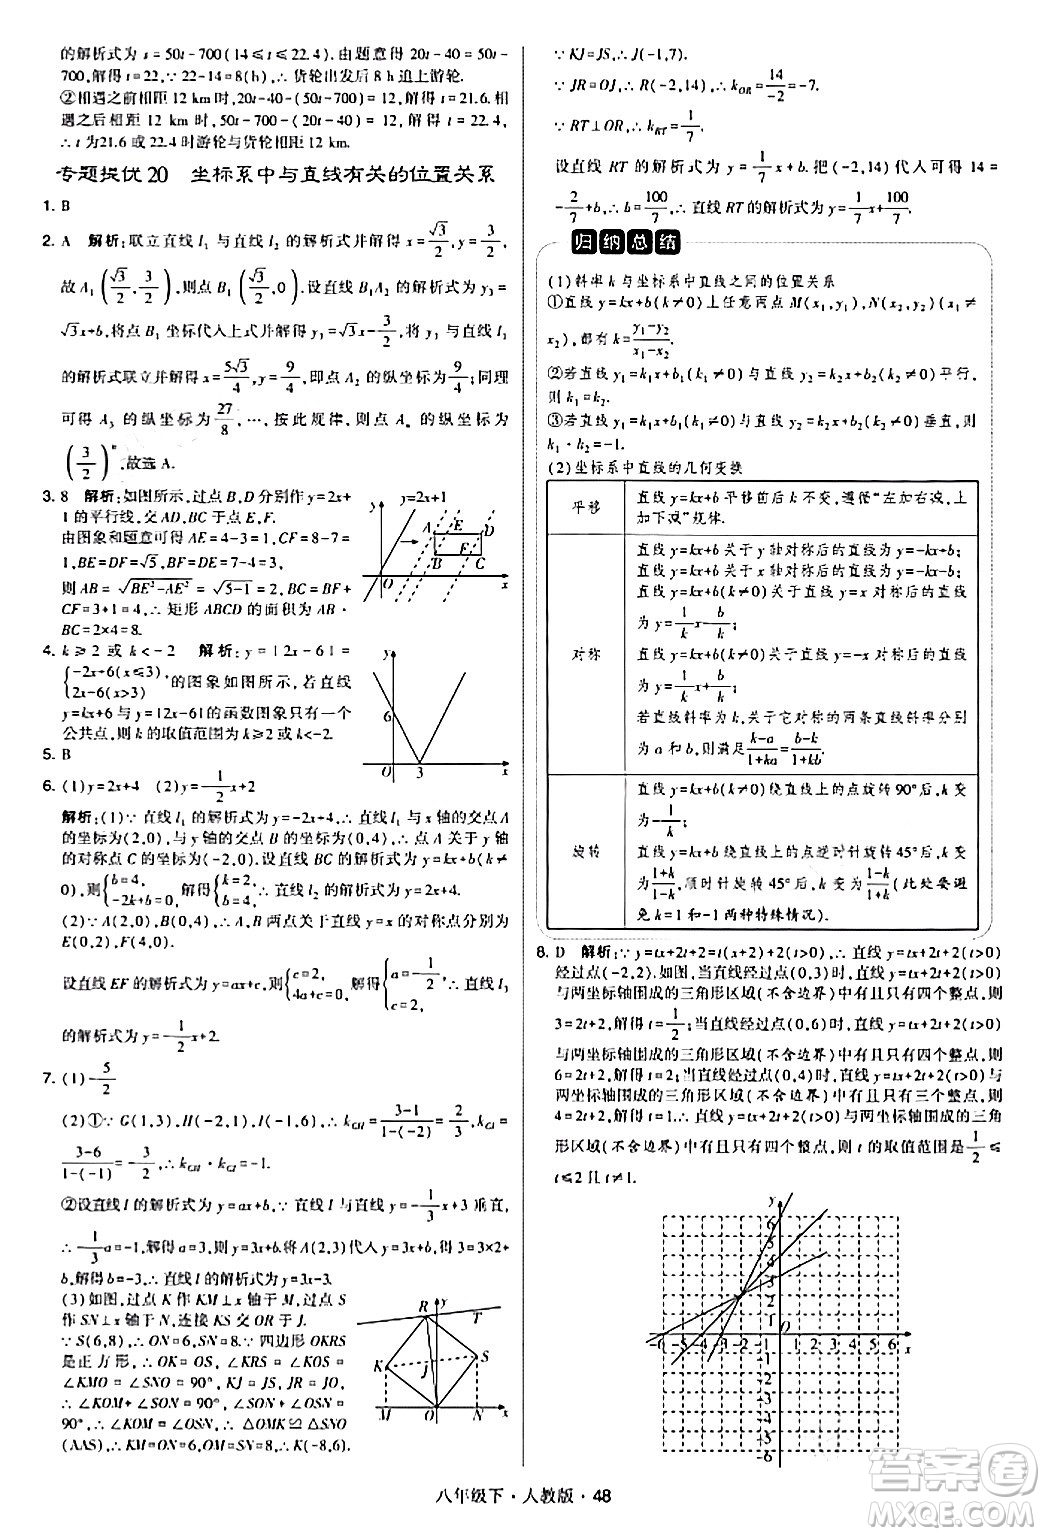 的解析式为 s=50t-700(14≤t≤22.4).由题意得 20t-40=50t-
700,解得 t=22,∵22-14=8(h),∴货轮出发后 8 h 追上游轮.
②相遇之前相距 12 km时,20t-40-(50t-700)=12,解得 t=21.6.相
遇之后相距 12 km时,50t-700-(20t-40)=12,解得 t=22.4,
∴t为21.6 或 22.4 时游轮与货轮相距 12 km.
专题提优20 坐标系中与直线有关的位置关系
1. B
2. A 解析:联立直线 l₁ 与直线 l₂ 的解析式并解得 x=√3/2,y=3/2,
故 A₁(√3/2,3/2),则点 B₁(√3/2,0).设直线 B₁A₂ 的解析式为 y₃=
√3x+b,将点 B₁ 坐标代人上式并解得 y₃=√3x-3/2,将 y₃ 与直线 l₁
的解析式联立并解得 x=5√3/4,y=9/4,即点 A₂ 的纵坐标为 9/4;同理
可得 A₃ 的纵坐标为 27/8,…,按此规律,则点 Aₙ 的纵坐标为
(3/2)ⁿ.故选 A.
3. 8 解析:如图所示,过点 B,D 分别作 y=2x+
1 的平行线,交 AD,BC 于点 E,F.
由图象和题意可得 AE=4-3=1,CF=8-7=
1,BE=DF=√5,BF=DE=7-4=3,
则 AB=√(BE²-AE²)=√(5-1)=2,BC=BF+
CF=3+1=4,∴矩形 ABCD 的面积为 AB·
BC=2×4=8.
4. k≥2 或 k<-2 解析:y=|2x-6|=
{-2x+6(x≤3),2x-6(x>3),的图象如图所示,∵直线
y=kx与 y=|2x-6|的函数图象有且只有一个
公共点,则 k 的取值范围为 k≥2 或 k<-2.
5. B
6. (1)y=2x+4 (2)y=-1/2x+2
解析:(1)∵直线 l₁ 的解析式为 y=-2x+4,∴直线 l₁ 与 x 轴的交点A
的坐标为(2,0),与 y 轴的交点 B 的坐标为(0,4),∴点 A 关于 y 轴
的对称点 C 的坐标为(-2,0).设直线 BC 的解析式为 y=kx+b(k≠
0),则{b=4,-2k+b=0,解得{k=2,b=4.∴直线 l₂ 的解析式为 y=2x+4.
(2)∵A(2,0),B(0,4),∴A,B 两点关于直线 y=x 的对称点分别为
E(0,2),F(4,0).
设直线 EF 的解析式为 y=ax+c,则{c=2,4a+c=0,解得{a=-1/2,c=2,∴直线 EF
的解析式为 y=-1/2x+2.
7. (1)-5/2
(2)①∵G(1,3),H(-2,1),I(-1,6),∴k_GH=(3-1)/(1-(-2))=2/3,k_GI=
(3-6)/(1-(-1))=-3/2,∴k_GH·k_GI=-1.
②设直线 l 的解析式为 y=ax+b,∵直线 l 与直线 y=-1/3x+3 垂直,
∴-1/3a=-1,解得 a=3,∴y=3x+b,将 A(2,3)代人 y=3x+b得 3=3×2+
b,解得 b=-3,∴直线 l 的解析式为 y=3x-3.
(3)如图,过点 K 作 KM⊥x 轴于 M,过点 S
作 SN⊥x 轴于N,连接 KS 交 OR 于 J,
∵S(6,8),∴ON=6,SN=8.∵四边形 OKRS
是正方形,∴OK=OS,∠KRS=∠KOS=
∠KMO=∠SNO=90°,KJ=JS,JR=JO,
∴∠KOM+∠SON=90°,∠SON+∠OSN=
90°,∴∠KOM=∠OSN,∴△OMK≌△SNO
(AAS),∴KM=ON=6,OM=SN=8,∴K(-8,6).
∵KJ=JS,∴J(-1,7);
∵JR=OJ,∴R(-2,14),∴k_OR=14/-2=-7.
∵RT⊥OR,∴k_RT=1/7.
设直线 RT 的解析式为 y=1/7x+b,把R(-2,14)代人可得 14=
-2/7+b,∴b=100/7,∴直线 RT的解析式为 y=1/7x+100/7.
归纳总结
(1)斜率 k 与坐标系中直线之间的位置关系
①直线 y=kx+b(k≠0)上任意两点 M(x₁,y₁),N(x₂,y₂)(x₁≠
x₂),都有 k=(y₁-y₂)/(x₁-x₂).
②若直线 y₁=k₁x+b₁(k₁≠0)与直线 y₂=k₂x+b₂(k₂≠0)平行,
则 k₁=k₂.
③若直线 y₁=k₁x+b₁(k₁≠0)与直线 y₂=k₂x+b₂(k₂≠0)垂直,
则 k₁·k₂=-1.
(2)坐标系中直线的几何变换
平移 直线 y=kx+b 平移前后 k 不变,遵循“左加右减,上
加下减”规律.
对称 直线 y=kx+b 关于 y轴对称后的直线为 y=-kx+b;
直线 y=kx+b 关于 x 轴对称后的直线为 y=-kx-b;
直线 y=kx+b(k≠0)关于 y=x 对称后的直线
为 y=1/k x-b/k;
直线 y=kx+b(k≠0)关于 y=-x 对称后的直线
为 y=1/k x+b/k;
若直线斜率为 k,关于它对称的两条直线斜率分别
为 a 和 b,则满足(k-a)/(1+ka)=(b-k)/(1+kb)
旋转 直线 y=kx+b(k≠0)绕直线上的点旋转90°后,k 变
为-1/k;
直线 y=kx+b 绕直线上的点逆时针旋转 45°后,k 变
为(1+k)/(1-k),顺时针旋转 45°后,k 变为(k-1)/(1+k)(此处要避
免 k=1 和-1 两种特殊情况).
8. D 解析:∵y=tx+2t+2=t(x+2)+2(t>0),∴直线 y=tx+2t+2(t>0)
经过点(-2,2),如图,当直线经过点(0,3)时,直线 y=tx+2t+2(t>0)
与两坐标轴围成的三角形区域(不含边界)中有且只有四个整点,则
3=2t+2,解得 t=1/2;当直线经过点(0,6)时,直线 y=tx+2t+2(t>0)
与两坐标轴围成的三角形区域(不含边界)中有且只有四个整点,则
6=2t+2,解得 t=2;当直线经过点(0,4)时,直线 y=tx+2t+2(t>0)与
两坐标轴围成的三角形区域(不含边界)中有且只有三个整点,则
4=2t+2,解得 t=1.∴直线 y=tx+2t+2(t>0)与两坐标轴围成的三角
形区域(不含边界)中有且只有四个整点,则 t 的取值范围是1/2≤
t≤2 且 t≠1.
八年级下·人教版·48
答案圈
MXQE.COM